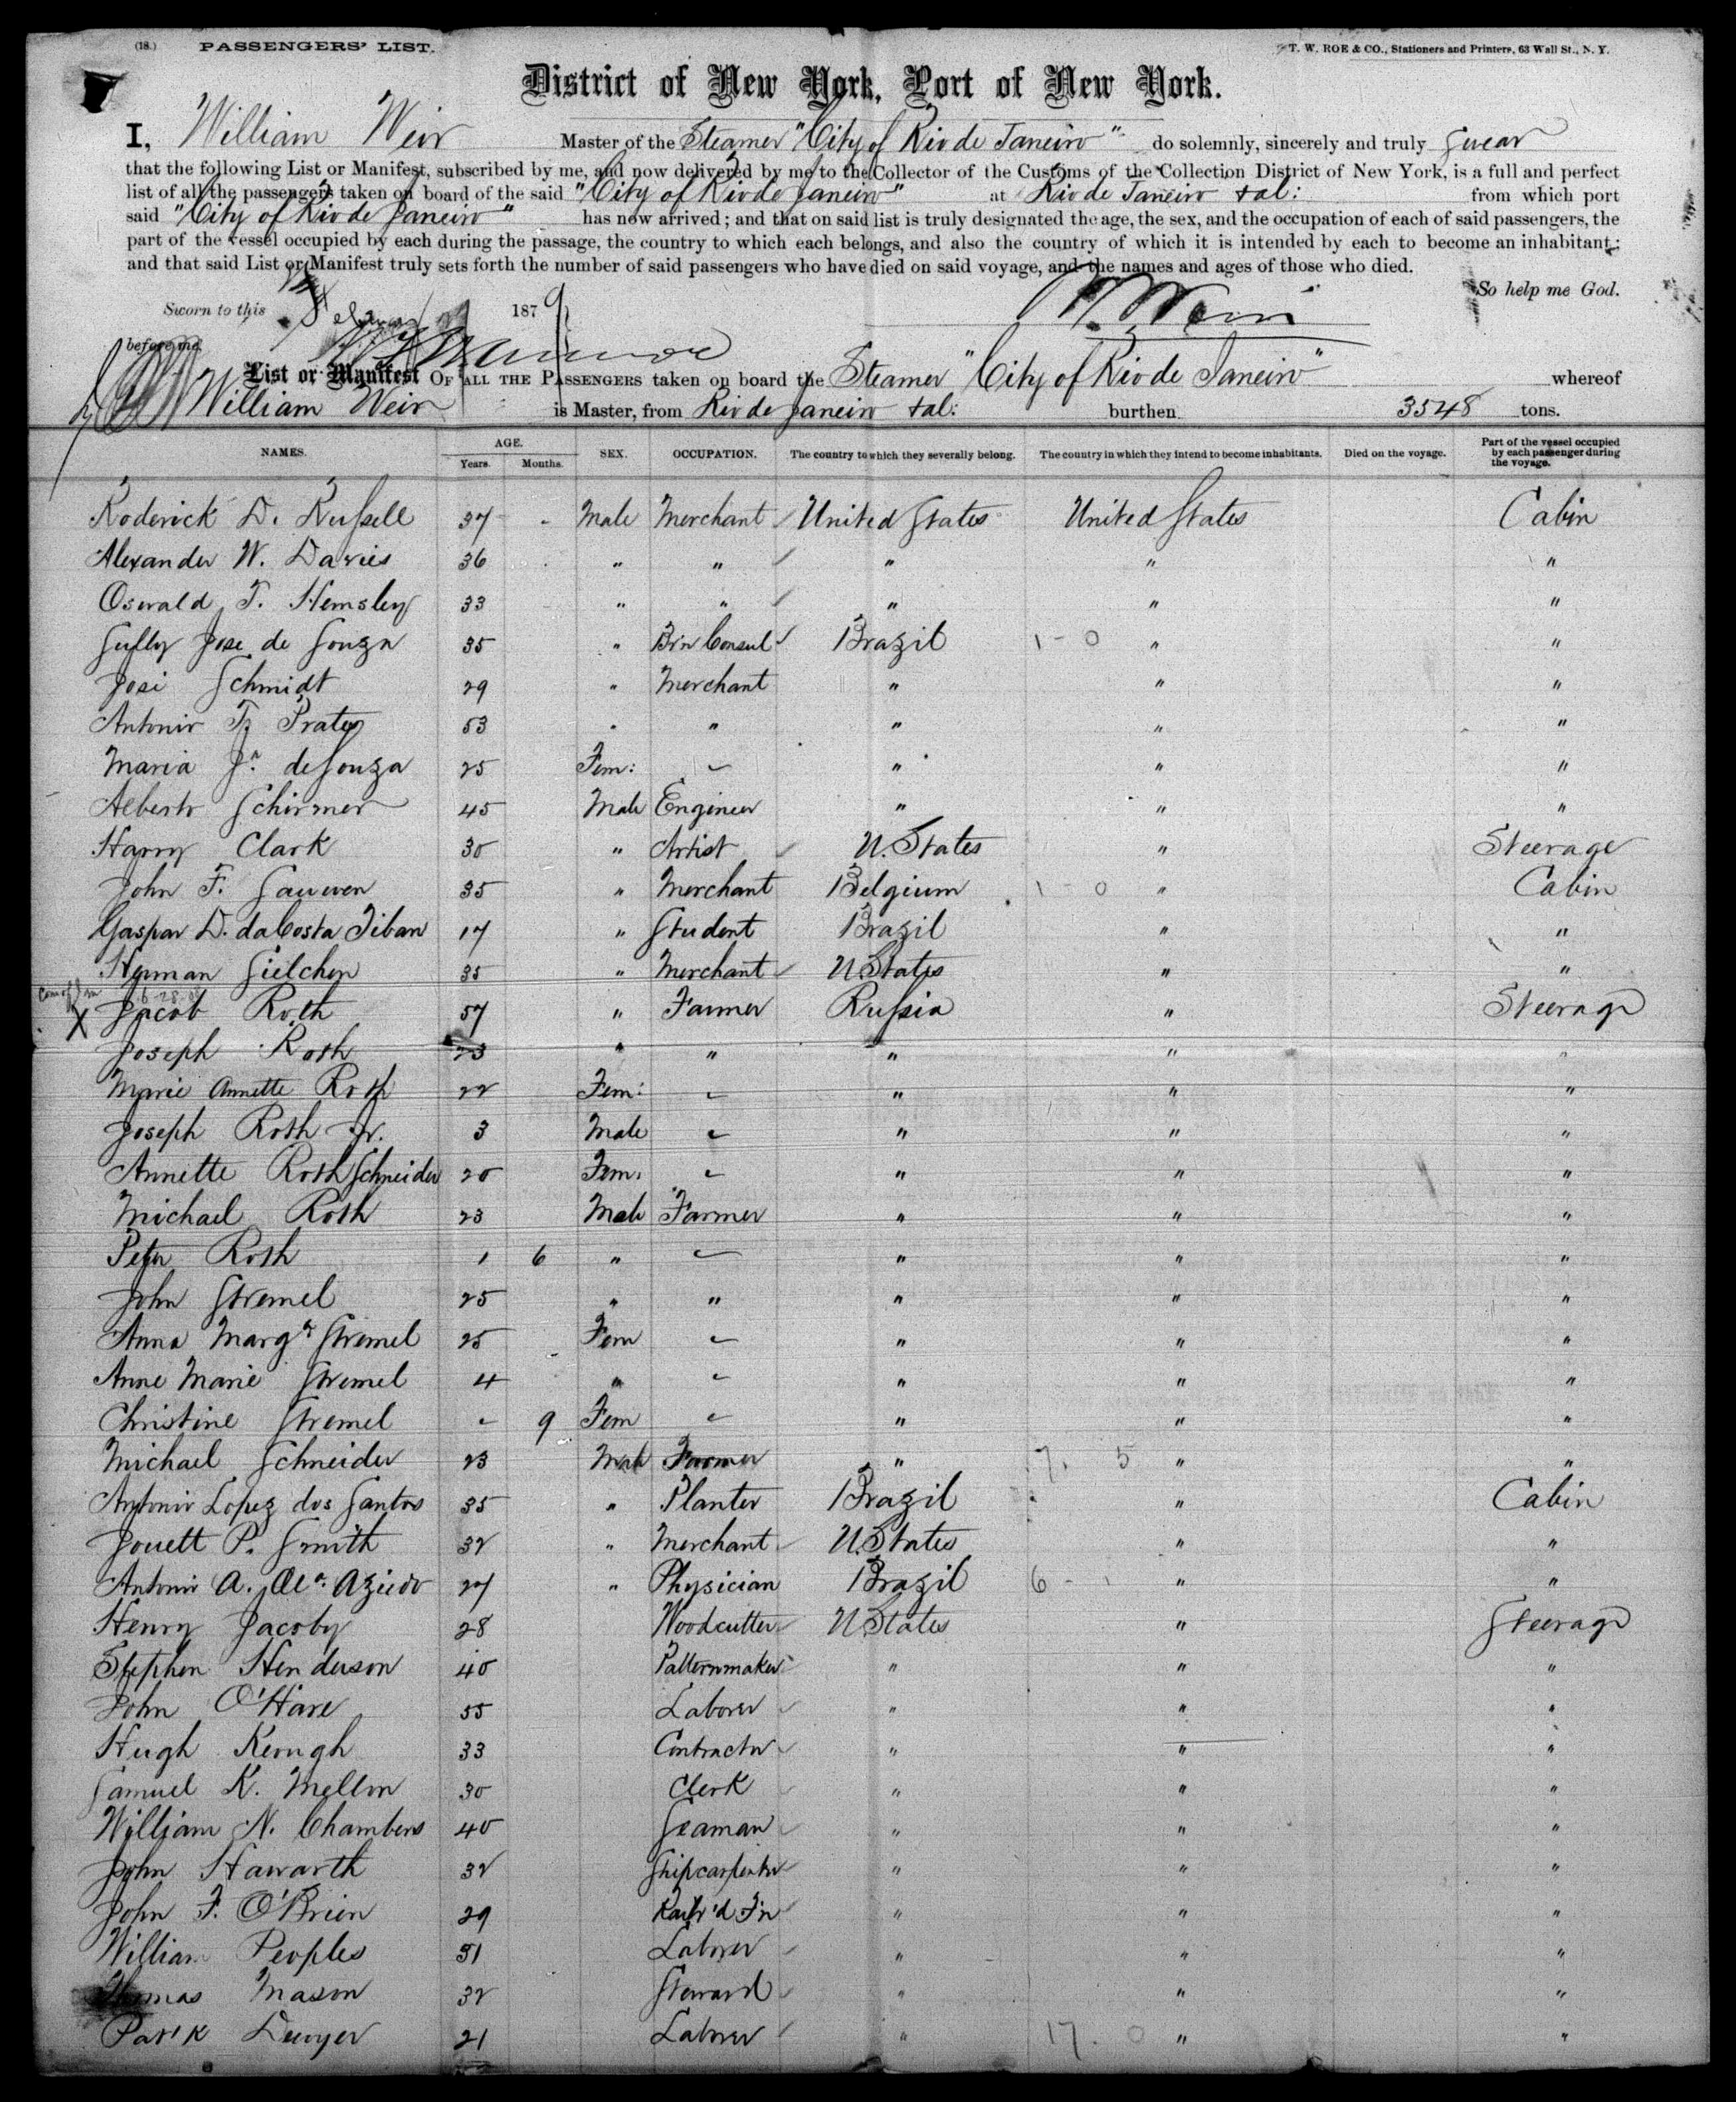 (18.) PASSENGERS' LIST. T. W. ROE & CO., Stationers and Printers, 63 Wall St., N. Y.
District of New York, Port of New York.
I, William Weir Master of the Steamer "City of Rio de Janeiro" do solemnly, sincerely and truly swear
that the following List or Manifest, subscribed by me, and now delivered by me to the Collector of the Customs of the Collection District of New York, is a full and perfect
list of all the passengers taken on board of the said "City of Rio de Janeiro" at Rio de Janeiro & al: from which port
said "City of Rio de Janeiro" has now arrived; and that on said list is truly designated the age, the sex, and the occupation of each of said passengers, the
part of the vessel occupied by each during the passage, the country to which each belongs, and also the country of which it is intended by each to become an inhabitant;
and that said List or Manifest truly sets forth the number of said passengers who have died on said voyage, and the names and ages of those who died.
So help me God.
Sworn to this 1879 W. Weir
before me
List or Manifest OF ALL THE PASSENGERS taken on board the Steamer "City of Rio de Janeiro" whereof
William Weir is Master, from Rio de Janeiro & al: burthen 3548 tons.
NAMES. AGE. Years. Months. SEX. OCCUPATION. The country to which they severally belong. The country in which they intend to become inhabitants. Died on the voyage. Part of the vessel occupied by each passenger during the voyage.
Roderick D. Russell 37 - Male Merchant United States United States Cabin
Alexander W. Davies 36 " " " " "
Oswald T. Hemsley 33 " " " " "
José de Souza 35 " B'n Consul Brazil 1 - 0 " "
Josi Schmidt 29 " Merchant " " "
Antonio Prates 53 " " " " "
Maria Ja. de Souza 25 Fem: " " "
Alberto Schirmer 45 Male Engineer " " "
Harry Clark 30 " Artist U. States " Steerage
John F. 35 " Merchant Belgium 1 - 0 " Cabin
Gaspar D. da Costa Tibau 17 " Student Brazil " "
Herman Gielchen 35 " Merchant U. States " "
X Jacob Roth 57 " Farmer Russia " Steerage
Joseph Roth 23 " " " " "
Marie Annette Roth 22 Fem: " " "
Joseph Roth Jr. 3 Male " " "
Annette Roth Schneider 20 Fem. " " "
Michael Roth 23 Male Farmer " " "
Peter Roth 1 6 " " " "
John Stremel 25 " " " " "
Anna Marga Stremel 25 Fem " " "
Anne Marie Stremel 4 " " " "
Christine Stremel 9 Fem " " "
Michael Schneider 23 Male Farmer " 7. 5 " "
Antonio Lopez dos Santos 35 " Planter Brazil " Cabin
Jouett P. Smith 32 " Merchant U. States " "
Antonio A. Azevedo 27 " Physician Brazil 6 - 1 " "
Henry Jacoby 28 Woodcutter U. States " Steerage
Stephen Henderson 40 Patternmaker " " "
John O'Hare 55 Laborer " " "
Hugh Keough 33 Contractor " " "
Samuel K. Mellon 30 Clerk " " "
William N. Chambers 40 Seaman " " "
John Hawarth 32 Shipcarpenter " " "
John F. O'Brien 29 Railr'd F'n " " "
William Peoples 51 Laborer " " "
Thomas Mason 32 Steward " " "
Pat'k Dwyer 21 Laborer " 17. 0 " "